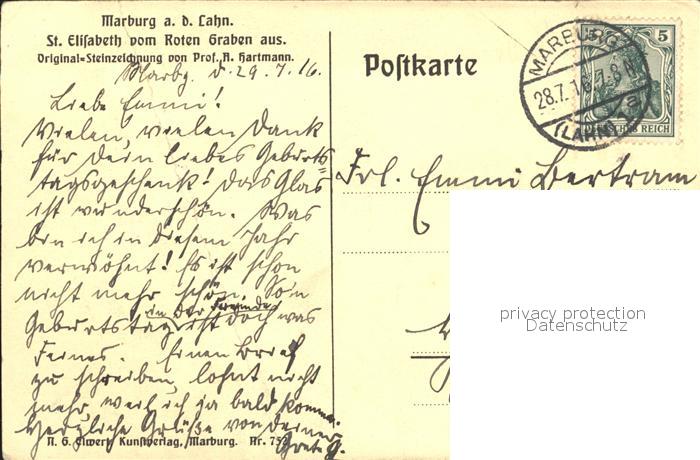 Marburg a. d. Lahn.
St. Elisabeth vom Roten Graben aus.
Original=Steinzeichnung von Prof. A. Hartmann.
Marbg. d. 29. 7. 16.
Liebe Emmi!
Vielen, vielen Dank
für Dein liebes Geburts=
tagsgeschenk! Das Glas
ist wunderschön. Was
bin ich in diesem Jahr
verwöhnt! Es ist schon
nicht mehr schön. So'n
Geburtstag in der Fremde ist doch was
Feines. Einen Brief
zu schreiben, lohnt nicht
mehr, weil ich ja bald komme.
Herzliche Grüße von Deiner
Grete G.
N. G. Elwert Kunstverlag, Marburg. Nr. 753
Postkarte
MARBURG
28.7.16. 7-8 N
a
(LAHN)
5
DEUTSCHES REICH
Frl. Emmi Bertram
privacy protection
Datenschutz